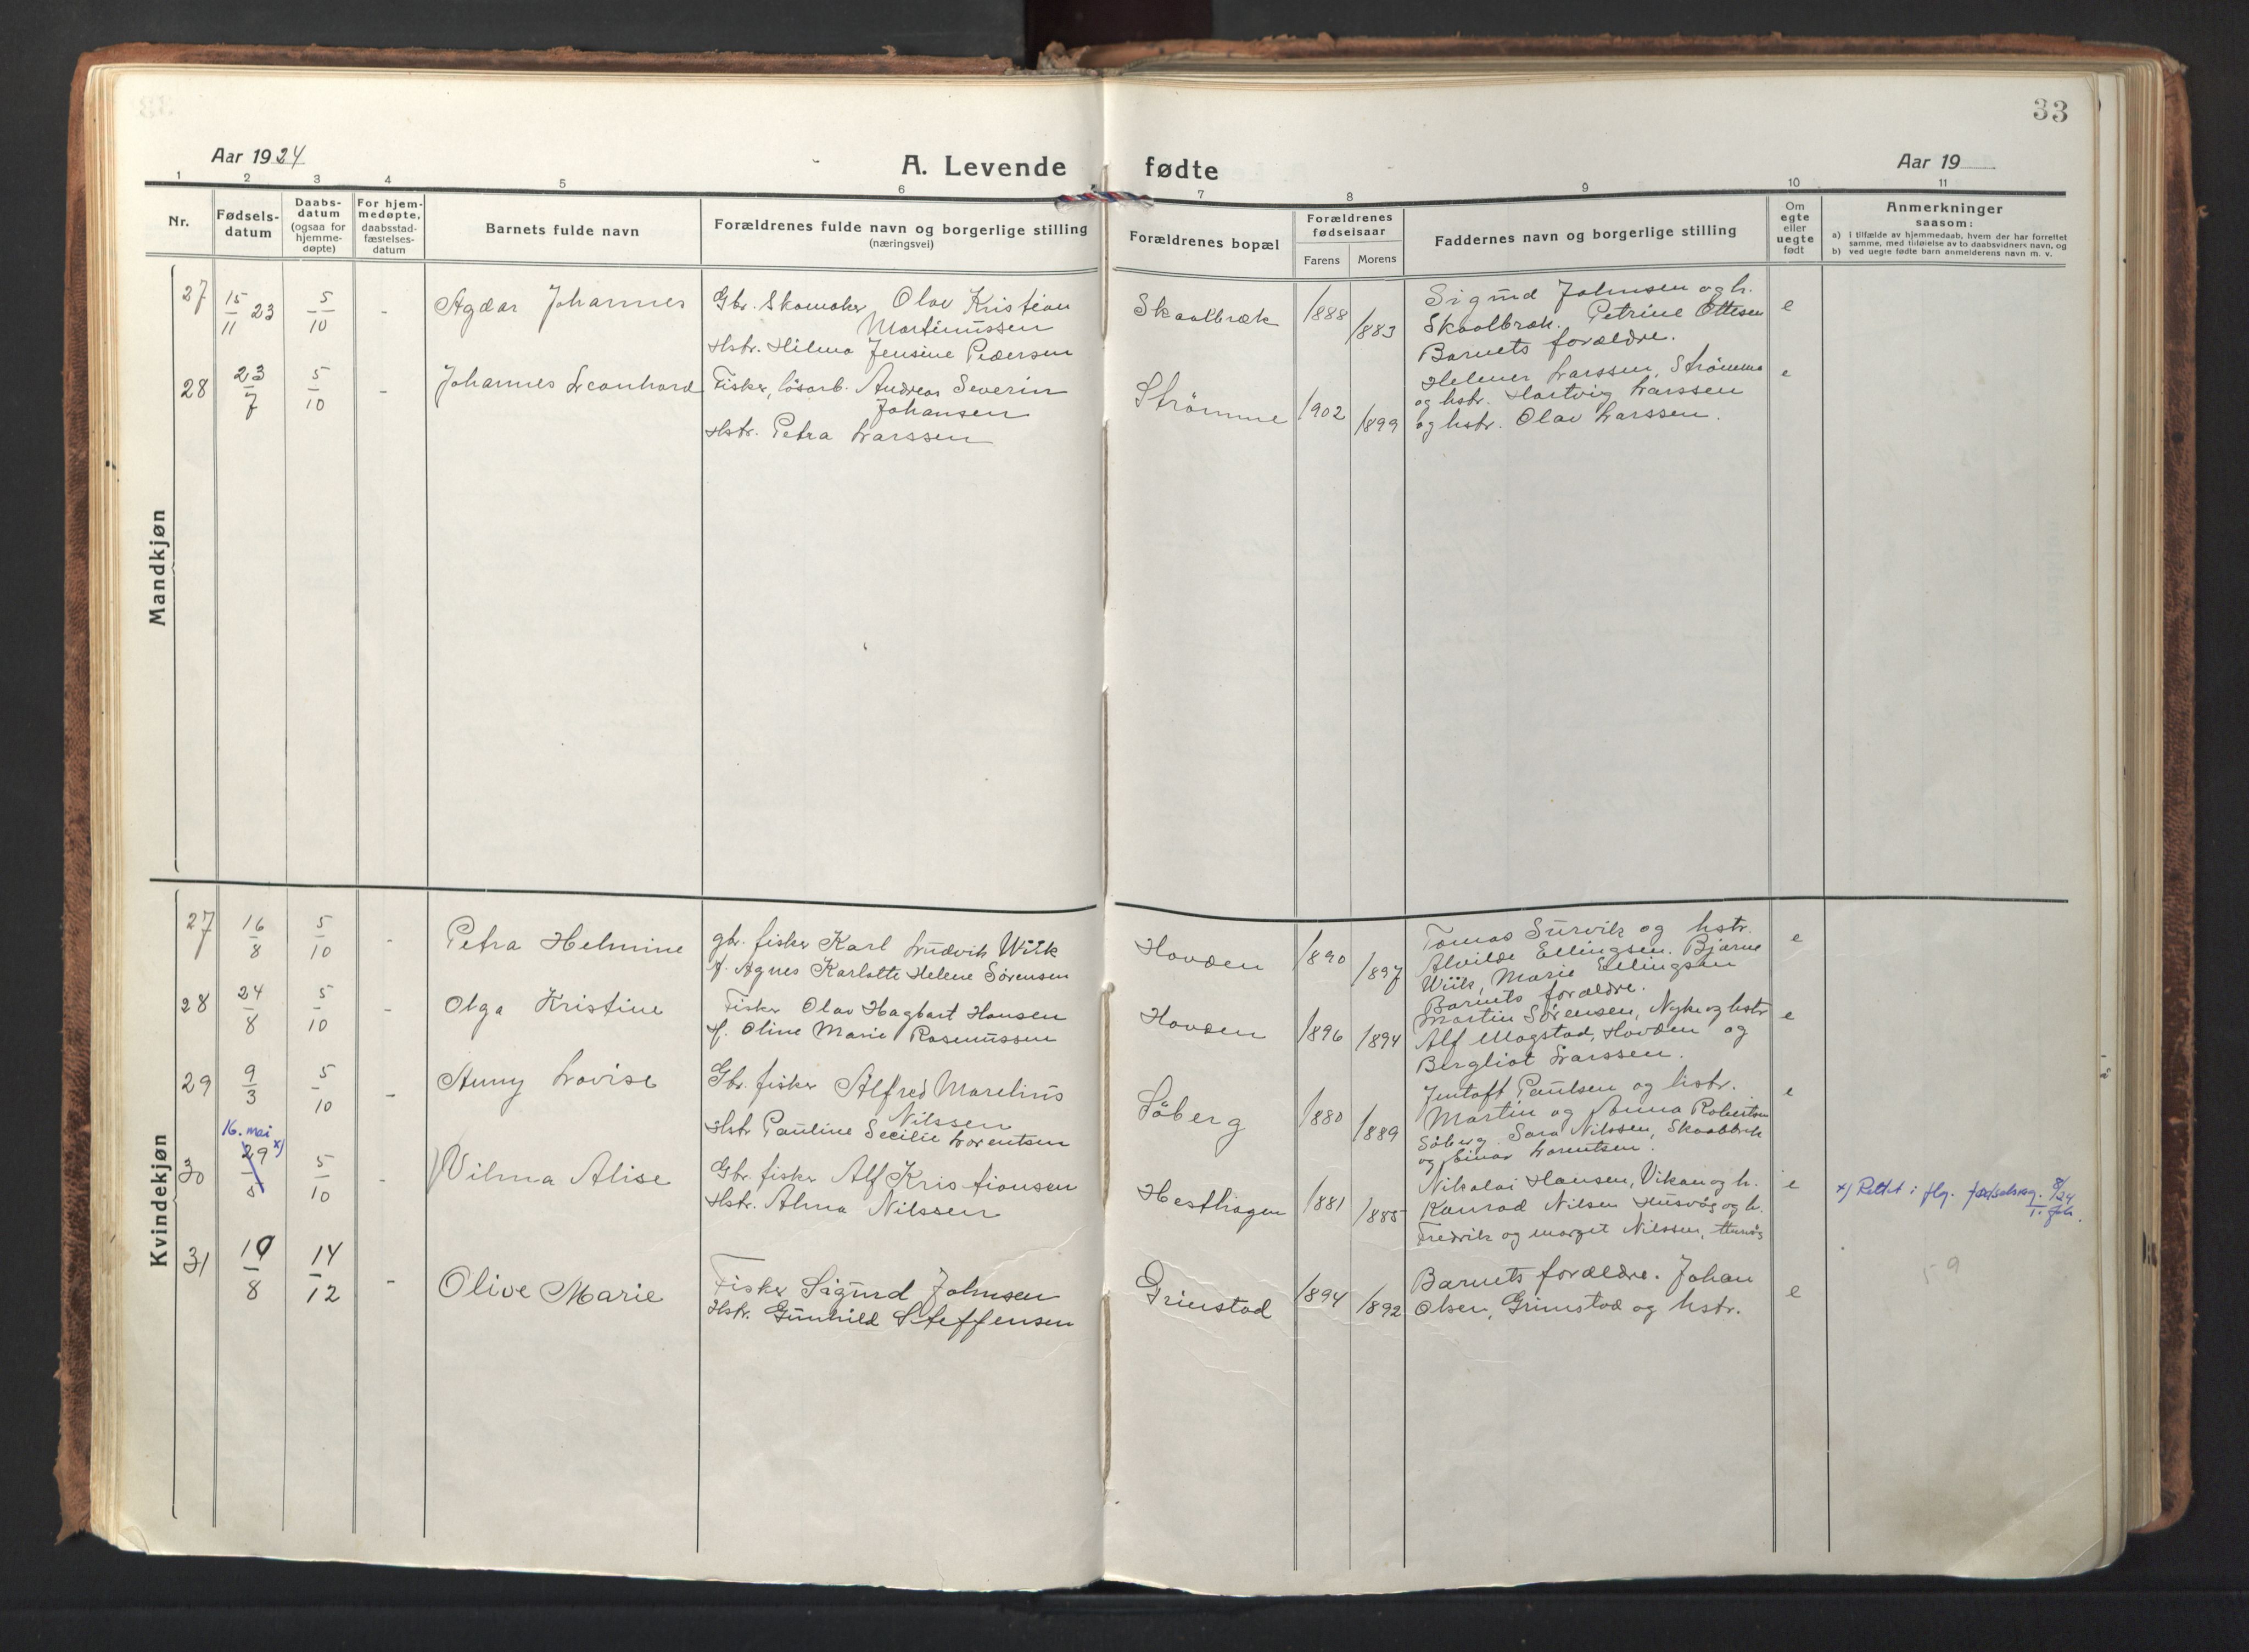 33
Aar 1924
A. Levende fødte
Aar 19
1 2 3 4 5 6 7 8 9 10 11
Nr.
Fødsels-
datum
Daabs-
datum
(ogsaa for
hjemme-
døpte)
For hjem-
medøpte,
daabsstad-
fæstelses-
datum
Barnets fulde navn
Forældrenes fulde navn og borgerlige stilling
(næringsvei)
Forældrenes bopæl
Forældrenes
fødselsaar
Farens Morens
Faddernes navn og borgerlige stilling
Om
egte
eller
uegte
født
Anmerkninger
saasom:
a) I tilfælde av hjemmedaab, hvem der har forrettet
samme, med tilføielse av to daabsvidners navn, og
b) ved uegte fødte barn anmelderens navn m. v.
Mandkjøn
27 15/11 23 5/10 - Agdar Johannes
Gbr. Skomaker Olav Kristian
Martinussen
Hstr. Hilma Jensine Pedersen
Skaalbræk 1888 1883
Sigurd Johnsen og h.
Skaalbræk. Petrine Ottesen
Barnets forældre.
e
28 23/7 5/10 - Johannes Leonhard
Fisker, løsarb. Andreas Severin
Johansen
Hstr. Petra Larssen
Strømme 1902 1899
Helmer Larssen, Strømme
og hstr. Hartvig Larssen
og hstr. Olav Larssen.
e
Kvindekjøn
27 16/8 5/10 - Petra Helmine
gbr. fisker Karl Ludvik Wiik
H. Agnes Karlotte Helene Sørensen
Hovden 1890 1897
Tomas Survik og hstr.
Alvilde Ellingsen. Bjarne
Wiik, Marie Ellingsen
Barnets forældre.
e
28 24/8 5/10 - Olga Kristine
Fisker Olav Hagbart Hansen
H. Oline Marie Rasmussen
Hovden 1896 1894
Martin Sørensen, Nyke og hstr
Alf Mogstad, Hovden og
Bergliot Larssen.
e
29 9/3 5/10 - Anny Lovise
Gbr. fisker Alfred Marelius
Nilssen
Hstr Pauline Secilie Lorentsen
Søberg 1880 1889
Jentoft Paulsen og hstr.
Martin og Anna Robertsen
Søberg. Sara Nilssen, Skaalbrek
og Einar Lorentsen.
e
16. mai x)
30 29/5 5/10 - Vilma Alise
Gbr. fisker Alf Kristiansen
Hstr. Alma Nilssen
Hesthagen 1881 1885
Nikolai Hansen, Vikan og h.
Konrad Nilsen Husvåg og h.
Fredrik og Marget Nilssen,
e
x) Rettet i flg. fødselsreg. 8/24
31 10/8 14/12 - Olive Marie
Fisker Sigurd Johnsen
Hstr. Gunhild Steffensen
Grimstad 1894 1892
Barnets forældre. Johan
Olsen, Grimstad og hstr.
e
59